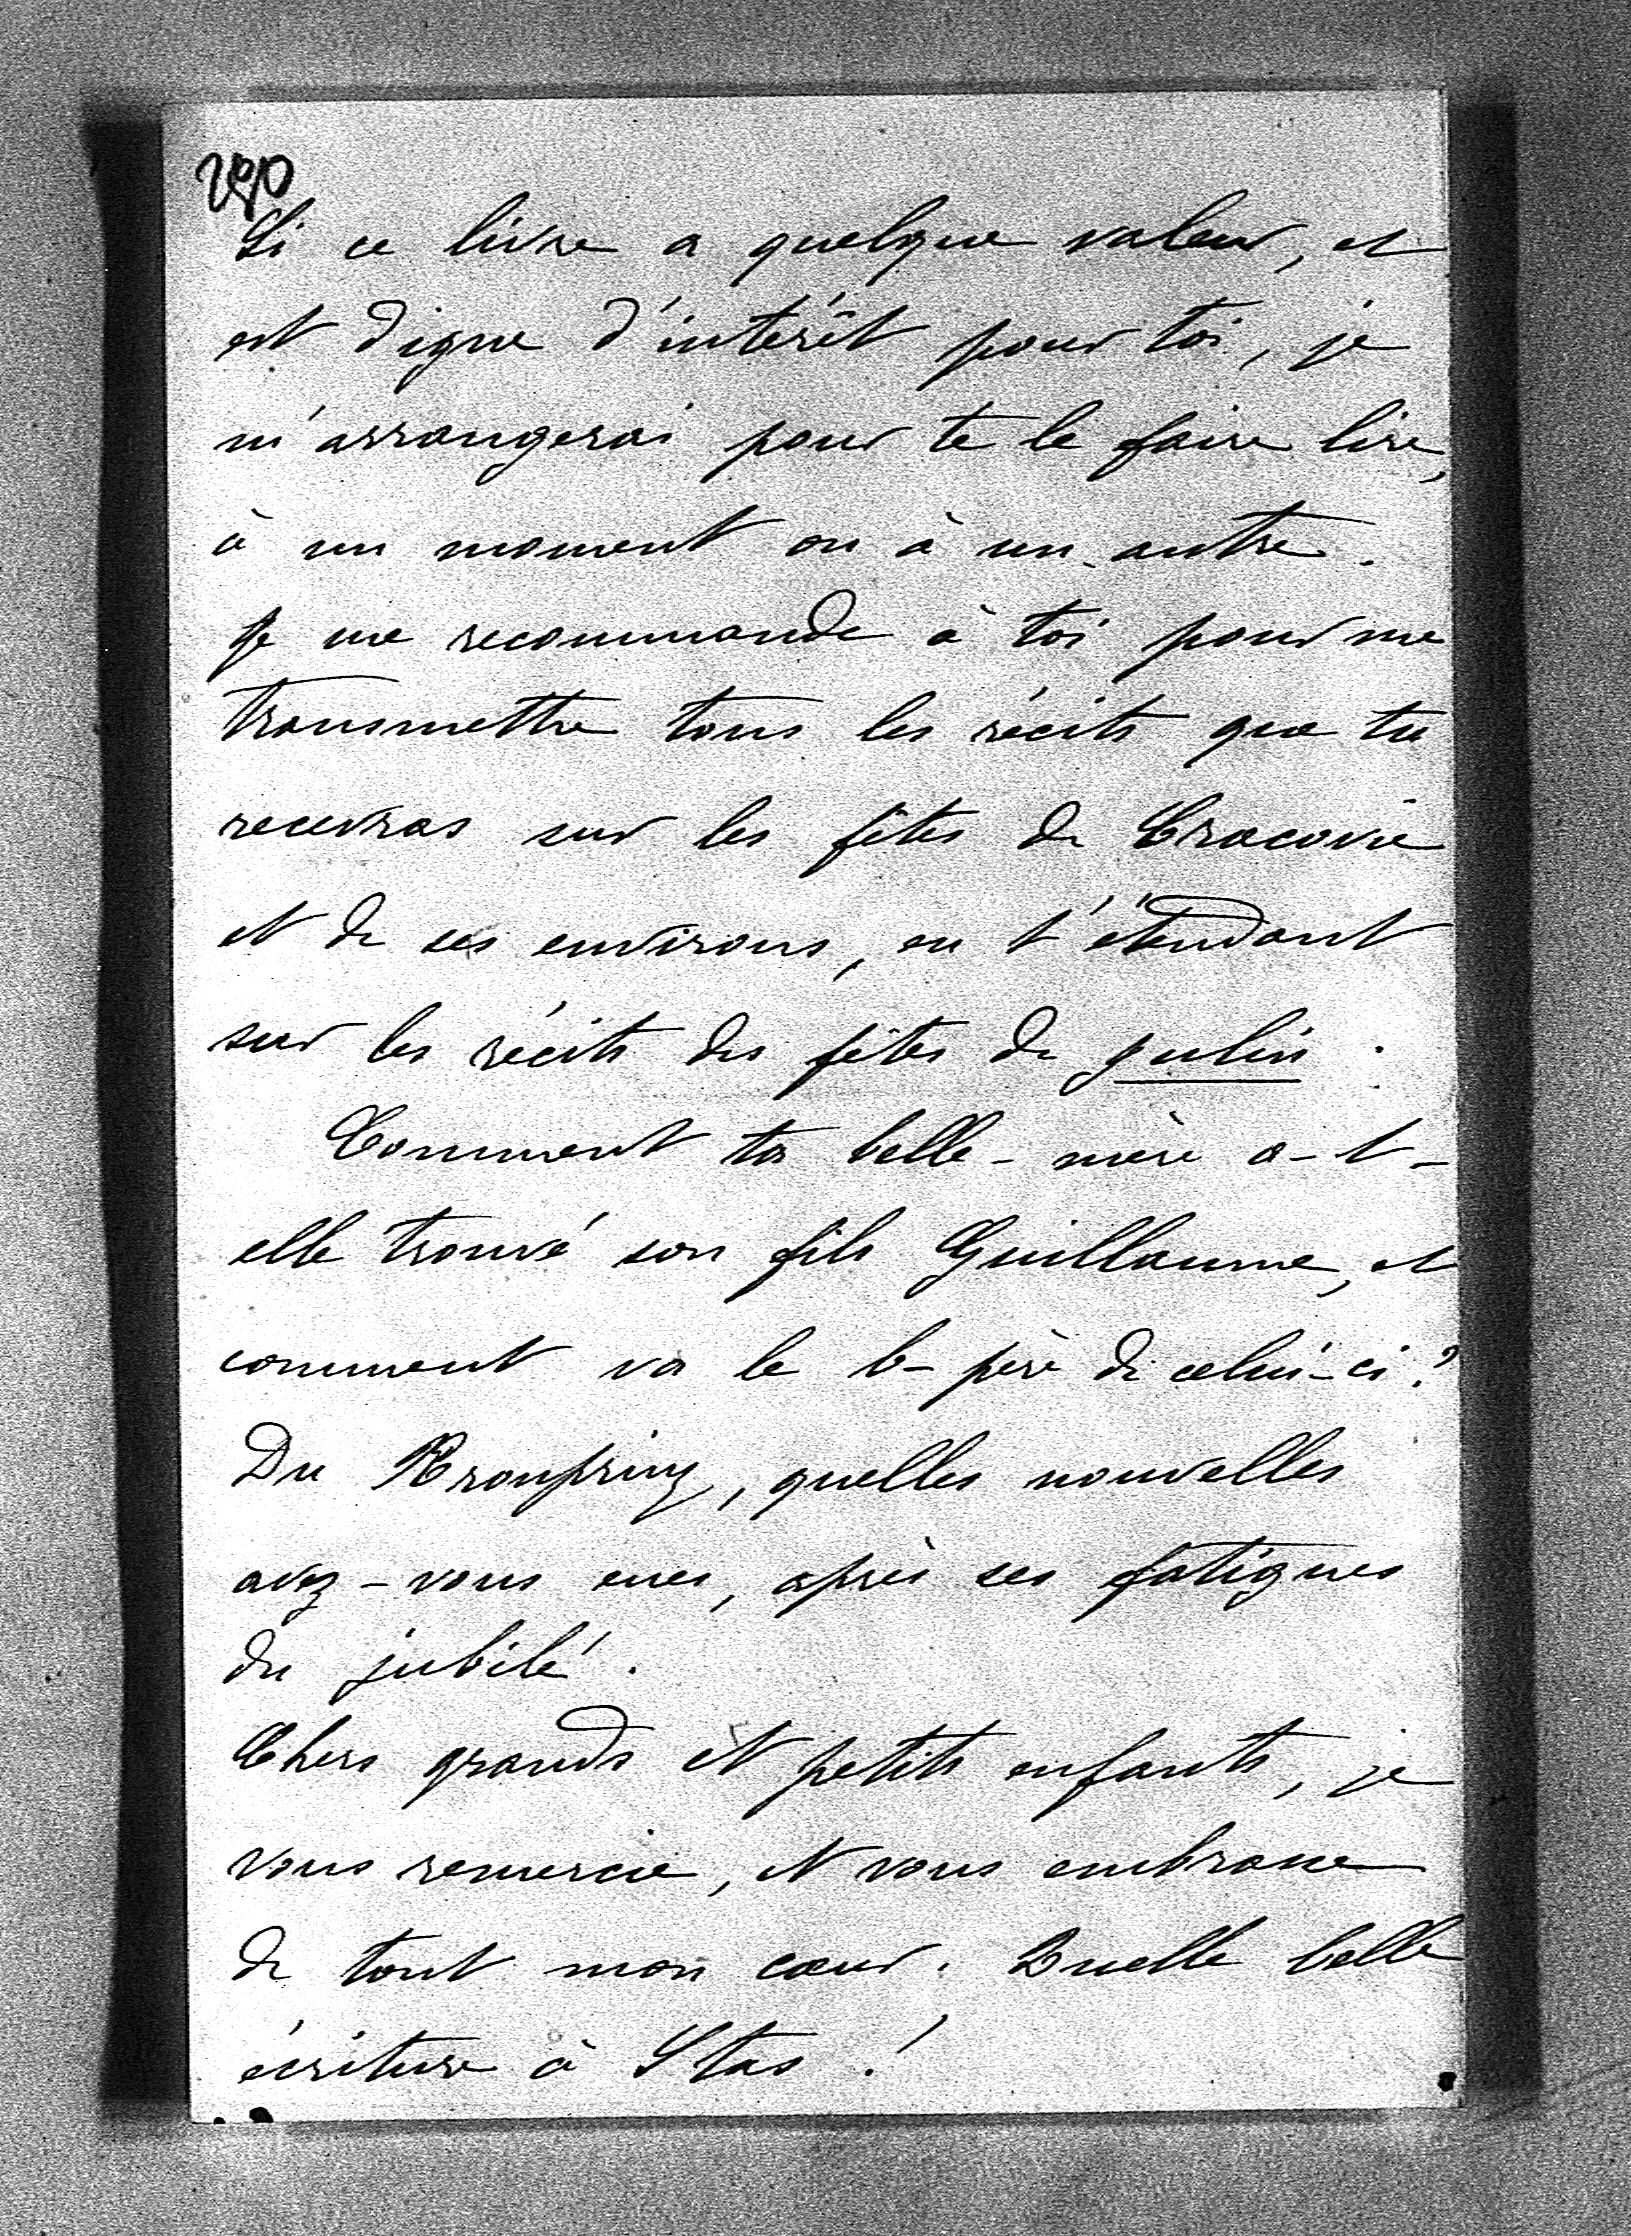 Si ce livre a quelque valeur, et
est digne d'intérêt pour toi, je
m'arrangerai pour te le faire lire,
à un moment ou à un autre.
Je me recommande à toi pour me
transmettre tous les récits que tu
recevras sur les fêtes de Cracovie
et de ses environs, en t'étendant
sur les récits des fêtes de Julin.
Comment ta belle-mère a-t-
elle trouvé son fils Guillaume, et
comment va le b-père de celui-ci?
Du Kronprinz, quelles nouvelles
avez-vous eues, après ses fatigues
du jubilé.
Chers grands et petits enfants, je
vous remercie, et vous embrasse
de tout mon cœur. Quelle belle
écriture à Stas!